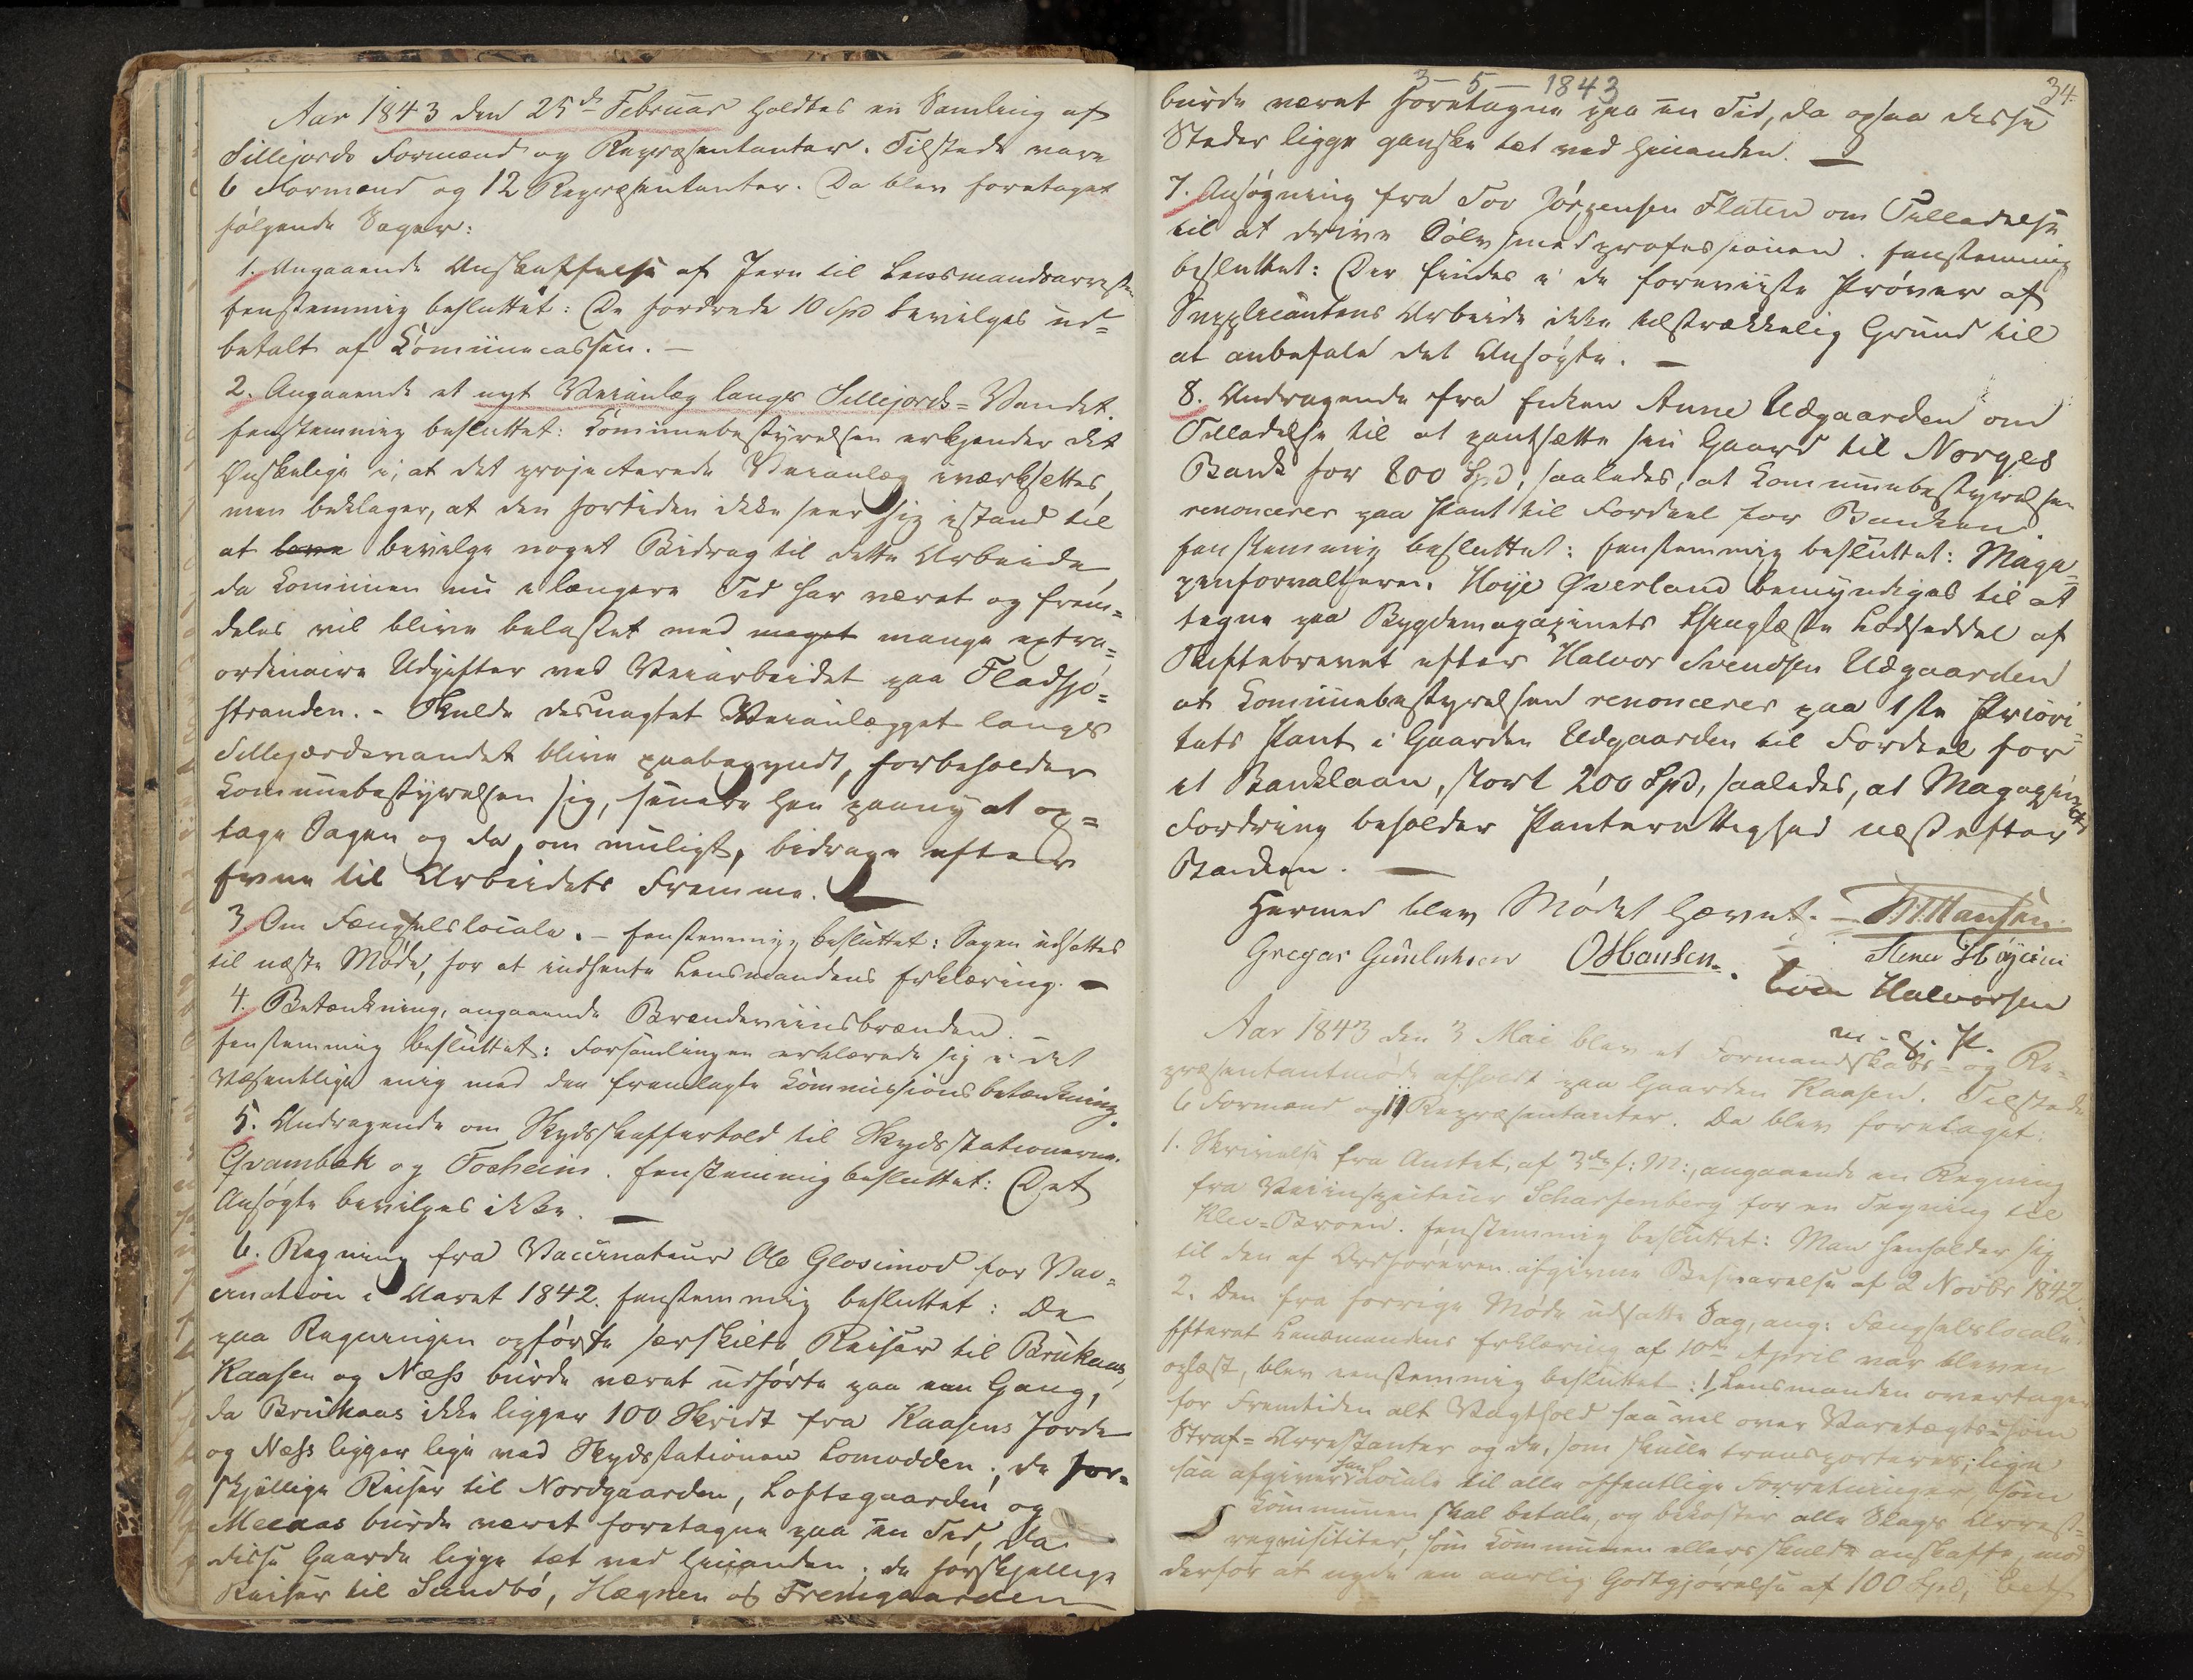 Aar 1843 den 25de Februar holdtes en Samling af
Sillejords Formænd og Repræsentanter. Tilstede vare
6 Formænd og 12 Repræsentanter. Da blev foretaget
følgende Sager:
1. Angaaende Anskaffelse af Jern til Lensmandsarresten
Eenstemmig besluttet: De fordrede 10 Spd bevilges ud=
betalt af Communecassen. —
2. Angaaende et nyt Veianlæg langs Sillejords=Vandet.
Eenstemmig besluttet: Communebestyrelsen erkjender det
Ønskelige i, at det projecterede Veianlæg iværksættes,
men beklager, at den fortiden ikke seer sig istand til
at love bevilge noget Bidrag til dette Arbeide,
da Communen nu i længere Tid har været og frem=
deles vil blive belastet med meget mange extra=
ordinaire Udgifter ved Veiarbeidet paa Fladsjø=
stranden. - Skulde desuagtet Veianlægget langs
Sillejordsvandet blive paabegyndt, forbeholder
Communebestyrelsen sig, senere hen paany at op=
tage Sagen og da, om muligt, bidrage efter
Evne til Arbeidets Fremme. —
3. Om Fængselslocale. — Eenstemmig besluttet: Sagen udsættes
til næste Møde, for at indhente Lensmandens Erklæring. —
4. Betænkning, angaaende Brændeviinsbrænden. —
Eenstemmig besluttet: Forsamlingen erklærede sig i det
Væsentlige enig med den fremlagte Commissionsbetænkning.
5. Andragende om Skydsskafferhold til Skydsstationerne
Qvambæk og Foeheim. Eenstemmig besluttet: Det
Ansøgte bevilges ikke. —
6. Regning fra Vaccinateur Ole Glosimod for Vac=
cination i Aaret 1842. Eenstemmig besluttet: De
paa Regningen opførte særskilte Reiser til Brukaas,
Kaasen og Næss burde været udførte paa een Gang,
da Brukaas ikke ligger 100 Skridt fra Kaasens Jorde
og Næss ligger lige ved Skydsstationen Lomodden; de for=
skjellige Reiser til Nordgaarden, Loftsgaarden og
Meeaas burde været foretagne paa een Tid, da
disse Gaarde ligge tæt ved hinanden; de forskjellige
Reiser til Sundbø, Hægnen og Fremgaarden
3 – 5 – 1843
34.
burde været foretagne paa een Tid, da ogsaa disse
Steder ligge ganske tæt ved hinanden. —
7. Ansøgning fra Tov Jørgensen Flaten om Tilladelse
til at drive Sølvsmedprofessionen. Eenstemmig
besluttet: Der findes i de foreviiste Prøver af
Supplicantens Arbeide ikke tilstrækkelig Grund til
at anbefale det Ansøgte. —
8. Andragende fra Enken Anne Udgaarden om
Tilladelse til at pantsætte sin Gaard til Norges
Bank for 800 Spd, saaledes, at Communebestyrelsen
renoncerer paa Pant til Fordeel for Banken
Eenstemmig besluttet: Eenstemmig besluttet: Maga=
zinforvalteren Høye Øverland bemyndiges til at
tegne paa Bygdemagazinets thinglæste Lodseddel af
Skiftebrevet efter Halvor Svendsen Udgaarden
at Communebestyrelsen renoncerer paa 1ste Priori=
tets Pant i Gaarden Udgaarden til Fordeel for
et Banklaan, stort 200 Spd, saaledes, at Magazinets
Fordring beholder Panterettighed næst efter
Banken. —
Hermed blev Mødet hævet. — Hansen.
Gregar Gunleiksen OHansen.
Halvorsen
m. f. P.
Aar 1843 den 3 Mai blev et Formandskabs= og Re=
præsentantmøde afholdt paa Gaarden Kaasen. Tilstede
6 Formænd og 11 Repræsentanter. Da blev foretaget:
1. Skrivelse fra Amtet, af 3die f: M:, angaaende en Regning
fra Veiinspecteur Scharfenberg for en Tegning til
Klev=Broen. Eenstemmig besluttet: Man henholder sig
til den af Ordføreren afgivne Besvarelse af 2 Novbr 1842.
2. Den fra forrige Møde udsatte Sag, ang: Fængselslocale.
Efterat Lensmandens Erklæring af 10de April var bleven
oplæst, blev eenstemmig besluttet: 1, Lensmanden overtager
for Fremtiden alt Vagthold saavel over Varetægts= som
Straf=Arrestanter og de, som skulle transporteres; lige
saa afgiver han Locale til alle offentlige Forretninger, som
Communen skal betale, og bekoster alle Slags Arrest=
requisititer, som Communen ellers skulde anskaffe, mod
derfor at nyde en aarlig Godtgjørelse af 100 Spd,